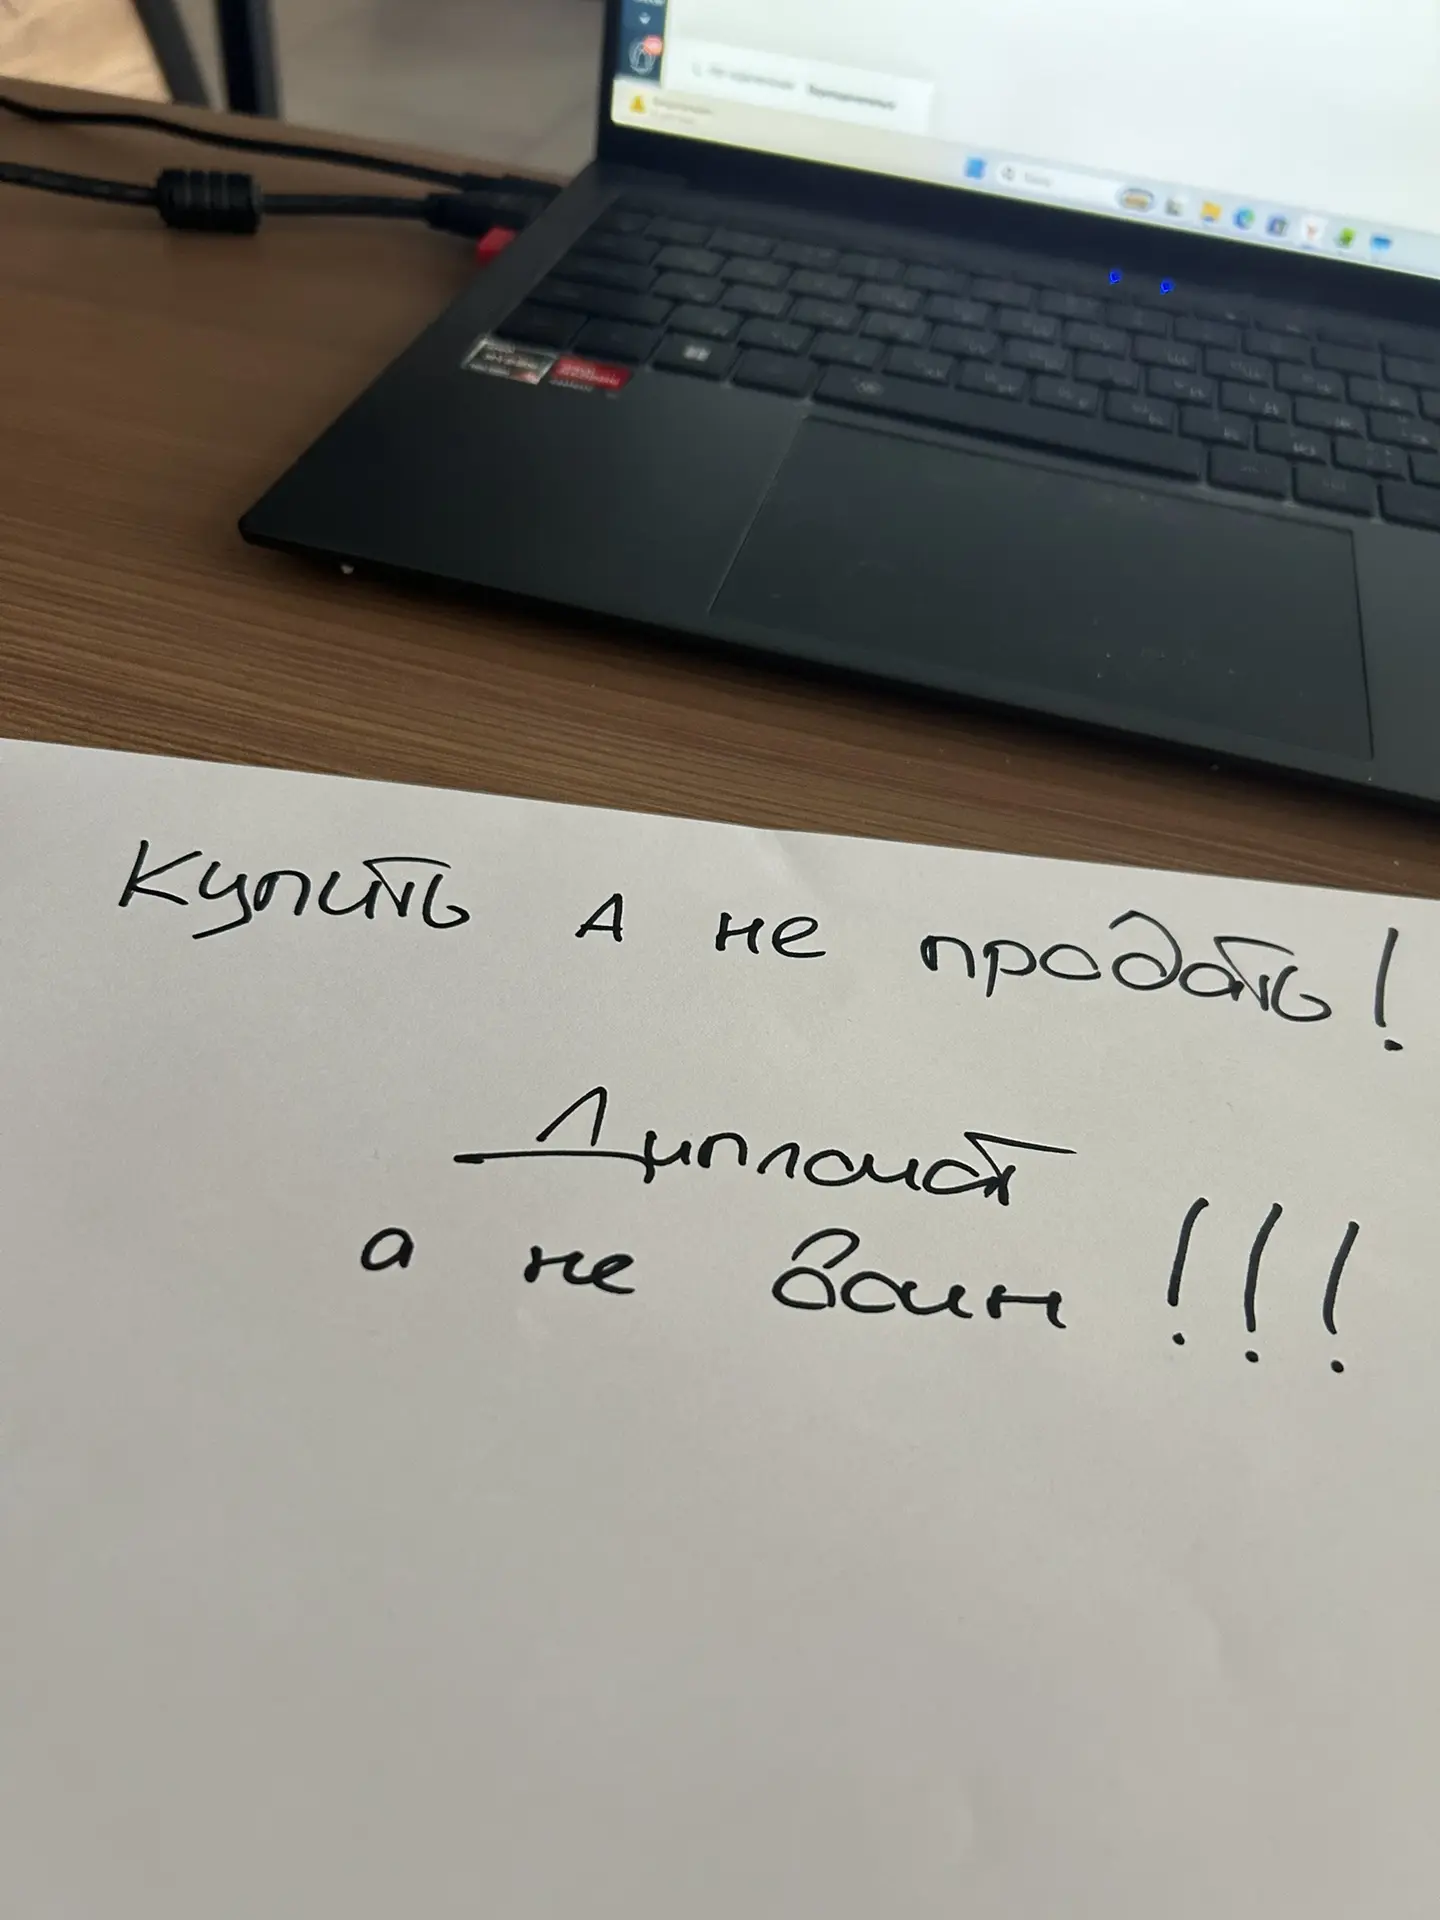 Купить А не продать!
Дипломат
а не Воин!!!